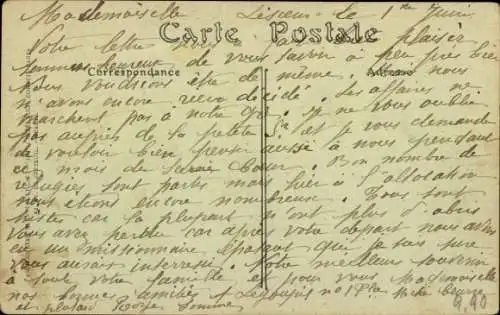 Mademoiselle Lisieux le 1er Juin
Carte Postale
Votre lettre nous a fait plaisir
sommes heureux de vous savoir à peu près bien
Correspondance Adresse
Nous voudrions être de même. Mais nous
n'avons encore rien décidé. Les affaires ne
marchent pas à notre gré. Je ne vous oublie
pas auprès de la petite Sr et je vous demande
de vouloir bien penser aussi à nous pendant
ce mois du Sacré Coeur. Bon nombre de
réfugiés sont partis mais hier à l'allocation
nous étions encore nombreux. Tous sont
tristes car la plupart n'ont plus d'abris
Vous avez perdu car après votre départ nous avons
eu un missionnaire épatant qui je suis sûre
vous aurait intéressé. Notre meilleur souvenir
à toute votre famille et pour vous Mademoiselle
nos bonnes amitiés
et plus tard Roye Somme
9,90